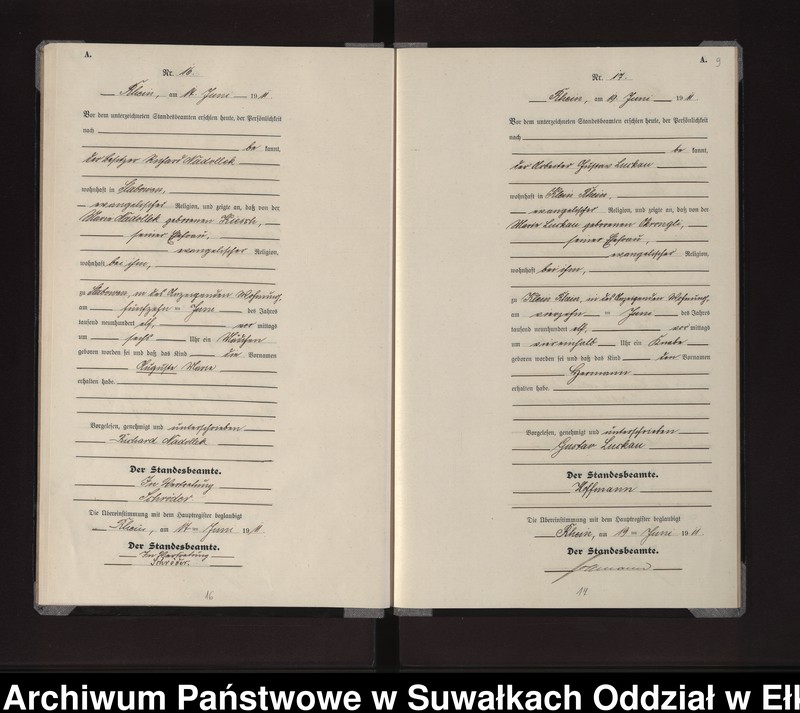 A.
Nr. 16.
Rhein, am 17. Juni 1911
Vor dem unterzeichneten Standesbeamten erschien heute, der Persönlichkeit
nach
be kannt,
der Besitzer Richard Nadollek
wohnhaft in
evangelischer Religion, und zeigte an, daß von der
Marie Nadollek geborenen
seiner Ehefrau,
evangelischer Religion,
wohnhaft bei ihm,
zu in des Anzeigenden Wohnung,
am fünfzehn = Juni des Jahres
tausend neunhundert elf, vor mittags
um sechs Uhr ein Mädchen
geboren worden sei und daß das Kind die Vornamen
Auguste Marie
erhalten habe.
Vorgelesen, genehmigt und unterschrieben
Richard Nadollek
Der Standesbeamte.
In Vertretung
Schröder
Die Übereinstimmung mit dem Hauptregister beglaubigt
Rhein, am 17 = Juni 1911.
Der Standesbeamte.
In Vertretung
Schröder.
16
A. 9
Nr. 17.
Rhein, am 19. Juni 1911
Vor dem unterzeichneten Standesbeamten erschien heute, der Persönlichkeit
nach
be kannt,
der Arbeiter Gustav Luckau
wohnhaft in Klein Rhein,
evangelischer Religion, und zeigte an, daß von der
Marie Luckau geborenen
seiner Ehefrau,
evangelischer Religion,
wohnhaft bei ihm,
zu Klein Rhein, in des Anzeigenden Wohnung,
am vierzehn = Juni des Jahres
tausend neunhundert elf, vor mittags
um viereinhalb Uhr ein Knabe
geboren worden sei und daß das Kind den Vornamen
Hermann
erhalten habe.
Vorgelesen, genehmigt und unterschrieben
Gustav Luckau
Der Standesbeamte.
Hoffmann
Die Übereinstimmung mit dem Hauptregister beglaubigt
Rhein, am 19 = Juni 1911
Der Standesbeamte.
Archiwum Państwowe w Suwałkach Oddział w Ełk